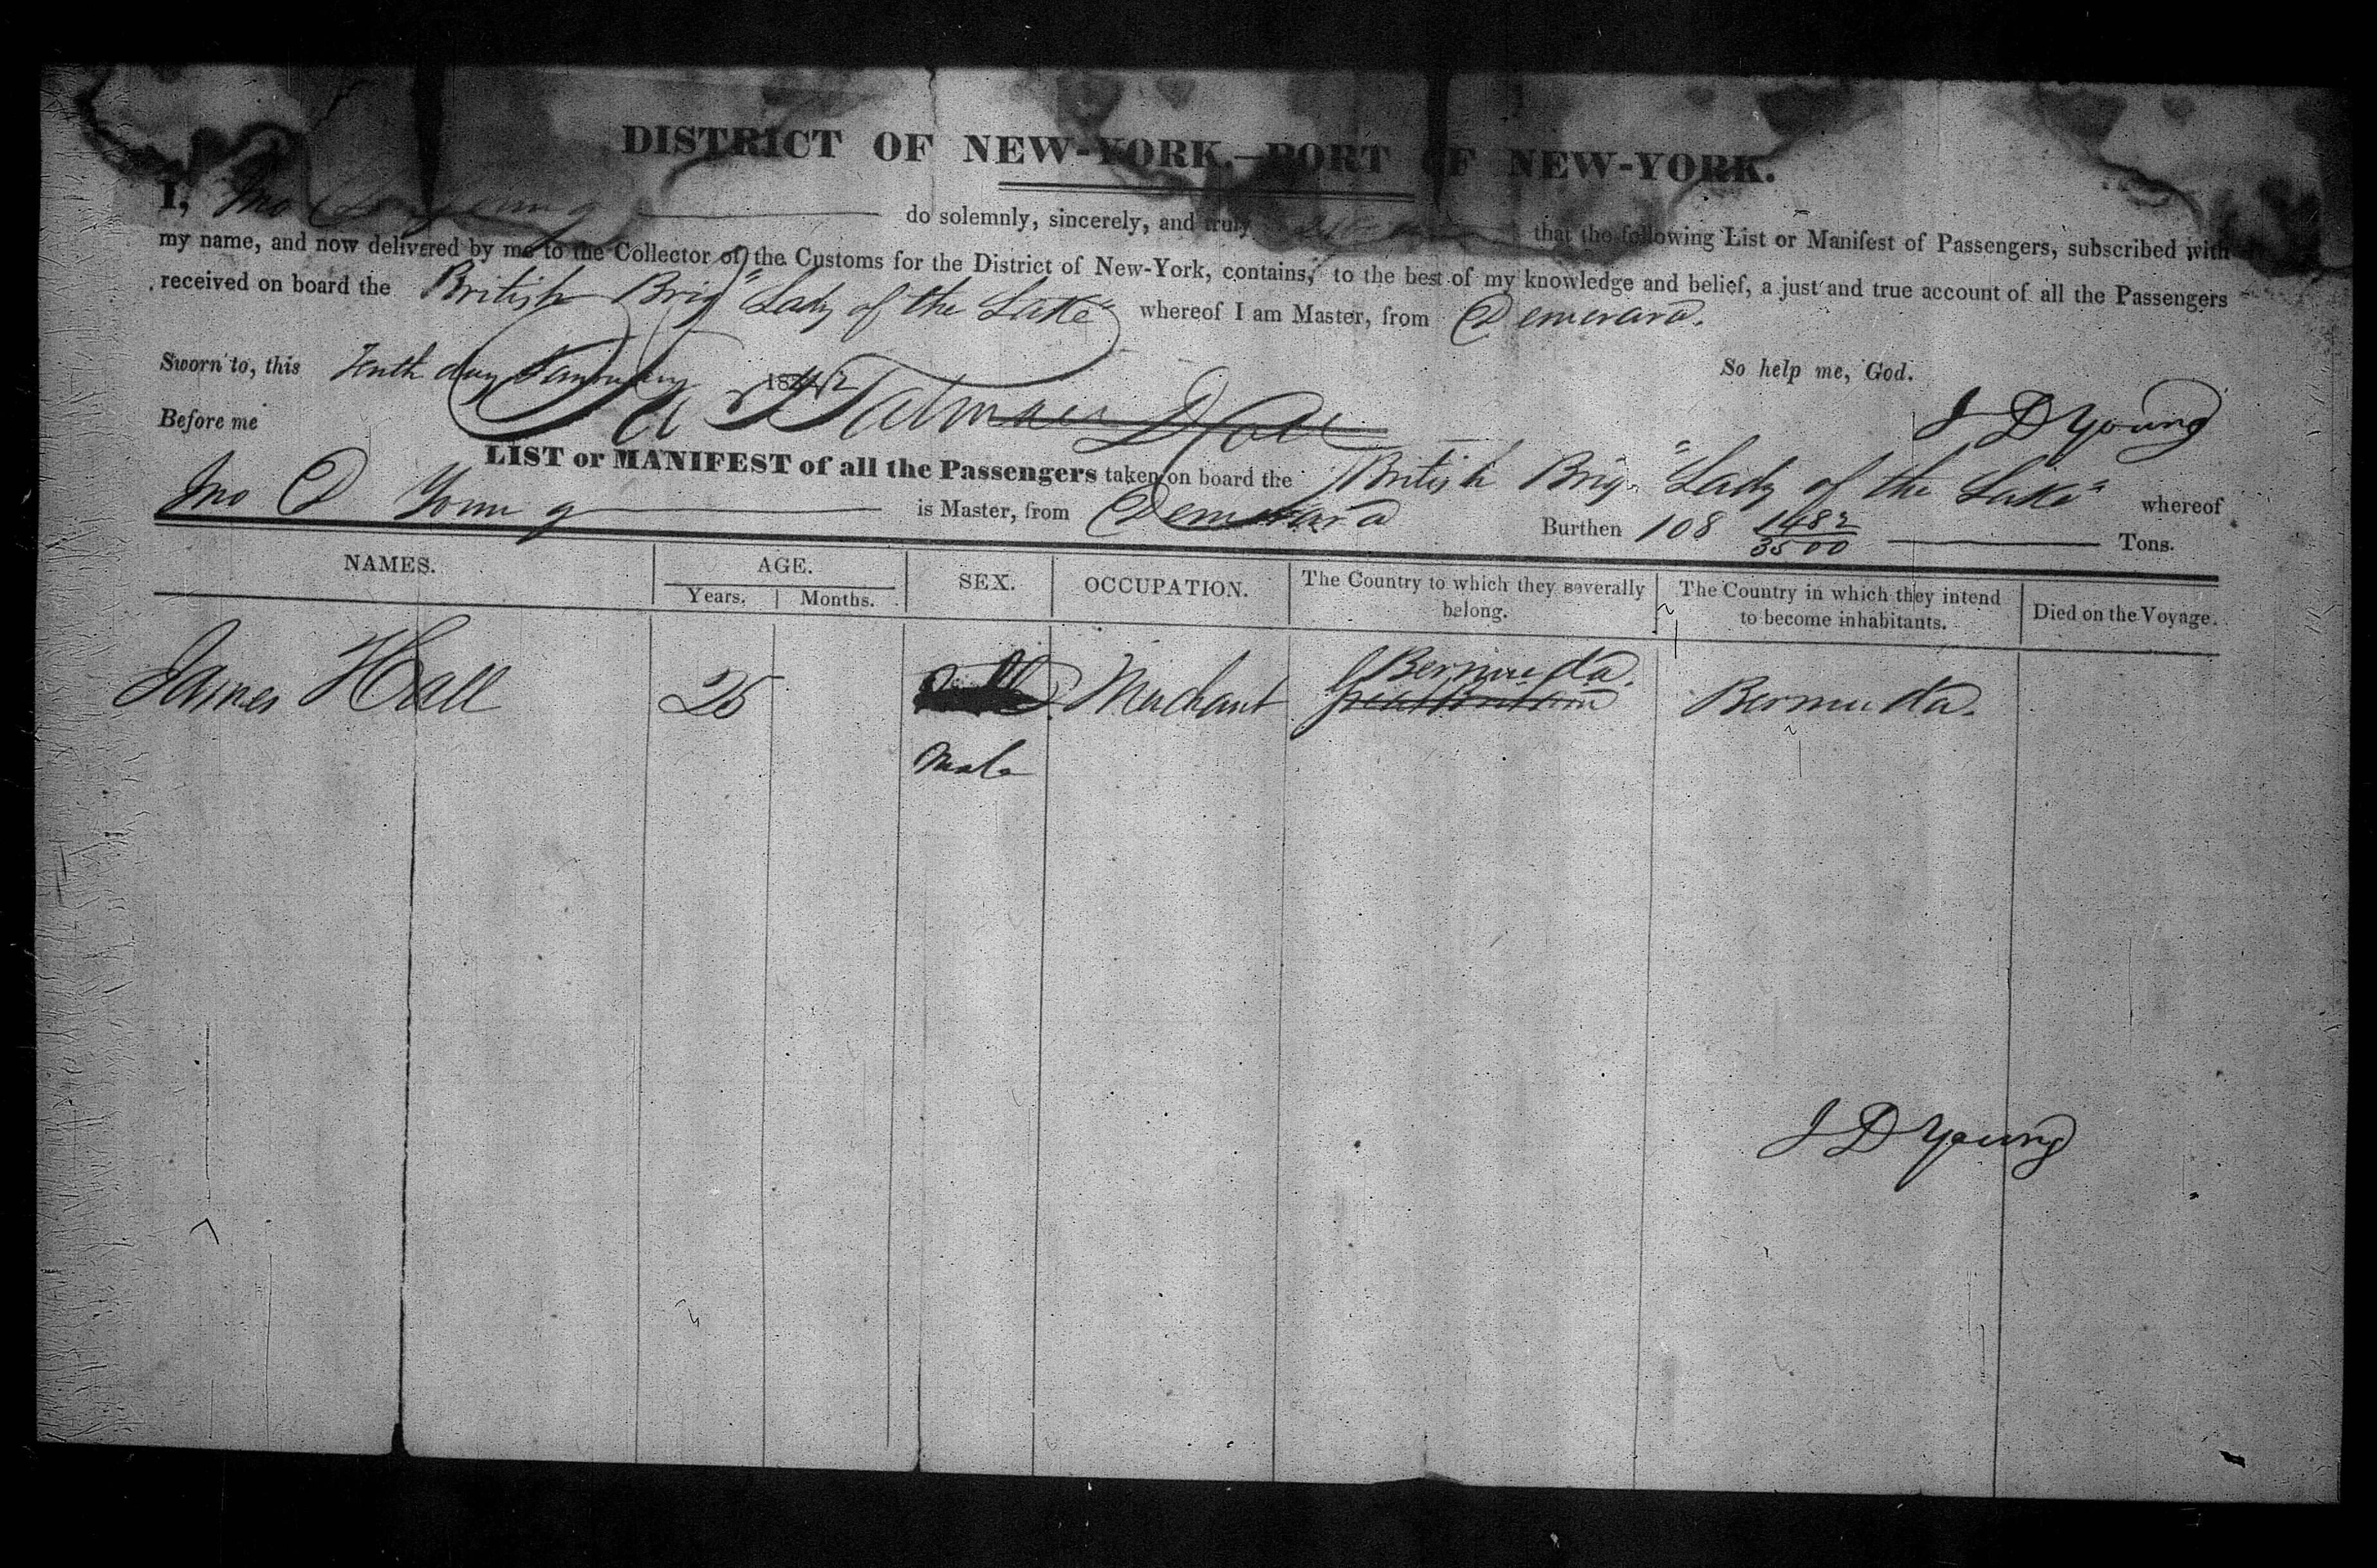 DISTRICT OF NEW-YORK,—PORT OF NEW-YORK.
I, Jno D Young do solemnly, sincerely, and truly swear that the following List or Manifest of Passengers, subscribed with
my name, and now delivered by me to the Collector of the Customs for the District of New-York, contains, to the best of my knowledge and belief, a just and true account of all the Passengers
received on board the British Brig "Lady of the Lake" whereof I am Master, from Demerara.
So help me, God.
Sworn to, this Tenth day January 1842
Before me
J D Young
LIST or MANIFEST of all the Passengers taken on board the British Brig "Lady of the Lake" whereof
Jno D Young is Master, from Demerara Burthen 108 1482/3500 Tons.
NAMES. AGE. SEX. OCCUPATION. The Country to which they severally belong. The Country in which they intend to become inhabitants. Died on the Voyage.
Years. Months.
James Hall 25 Merchant Bermuda. Great Britain Bermuda.
Male
J D Young